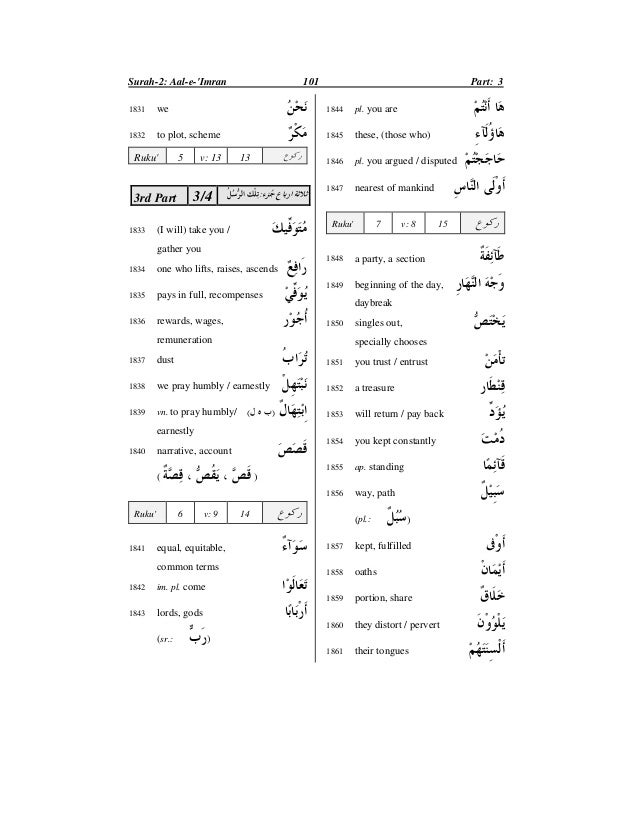 Surah-2: Aal-e-'Imran 101 Part: 3
1831 we نَحْنُ
1832 to plot, scheme مَكْرٌ
Ruku' 5 v: 13 13 ركوع
3rd Part 3/4 ثلاثة ارباع جزء: تِلْكَ الرُّسُلُ
1833 (I will) take you / مُتَوَفِّيكَ
gather you
1834 one who lifts, raises, ascends رَافِعٌ
1835 pays in full, recompenses يُوَفِّيْ
1836 rewards, wages, أُجُوْرٌ
remuneration
1837 dust تُرَابٌ
1838 we pray humbly / earnestly نَبْتَهِلْ
1839 vn. to pray humbly/ (ب ه ل) اِبْتِهَالٌ
earnestly
1840 narrative, account قَصَصَ
( قَصَّ ، يَقُصُّ ، قِصَّةٌ )
Ruku' 6 v: 9 14 ركوع
1841 equal, equitable, سَوَآءٌ
common terms
1842 im. pl. come تَعَالَوْا
1843 lords, gods أَرْبَابًا
(sr.: رَبٌّ)
1844 pl. you are هَا أَنْتُمْ
1845 these, (those who) هَاؤُلَآءِ
1846 pl. you argued / disputed حَاجَجْتُمْ
1847 nearest of mankind أَوْلَى النَّاسِ
Ruku' 7 v: 8 15 ركوع
1848 a party, a section طَآئِفَةٌ
1849 beginning of the day, وَجْهَ النَّهَارِ
daybreak
1850 singles out, يَخْتَصُّ
specially chooses
1851 you trust / entrust تأْمَنْ
1852 a treasure قِنْطَار
1853 will return / pay back يُؤَدِّ
1854 you kept constantly دُمْتَ
1855 ap. standing قَآئِمًا
1856 way, path سَبِيْلٌ
(pl.: سُبُلٌ)
1857 kept, fulfilled أَوْفى
1858 oaths أَيْمَانْ
1859 portion, share خَلَاقٌ
1860 they distort / pervert يَلْوُوْنَ
1861 their tongues أَلْسِنَتَهُمْ